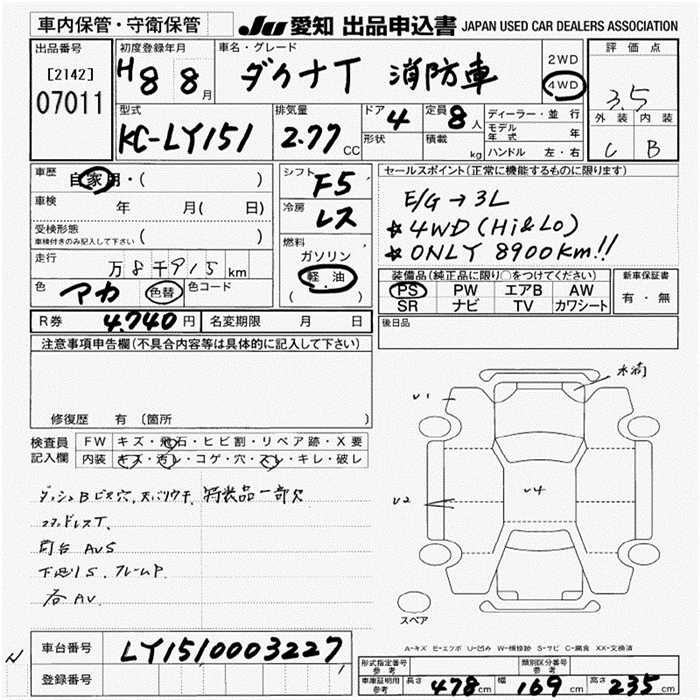 車内保管・守衛保管 JU 愛知 出品申込書 JAPAN USED CAR DEALERS ASSOCIATION
出品番号 初度登録年月 車名・グレード 評価点
[2142] H8 8月 ダイナT 消防車 2WD 4WD 3.5
07011
型式 排気量 ドア 4 定員 8人 ディーラー・並行 外装 内装
KC-LY151 2.77CC 形状 積載 kg モデル年式 年 C B
ハンドル 左・右
車歴 自家用・( ) シフト F5 セールスポイント(正常に機能するものに限ります)
車検 年 月( 日) 冷房 レス E/G→3L
受検形態 ( ) ☆4WD(Hi&Lo)
車検付きのみ記入して下さい 燃料 ☆ONLY 8900Km!!
走行 万8千915km ガソリン
色 アカ 色替 色コード 軽・油 装備品(純正品に限り○をつけてください) 新車保証書
( ) PS PW エアB AW 有・無
SR ナビ TV カワシート
R券 4,740円 名変期限 月 日 後日品
注意事項申告欄(不具合内容等は具体的に記入して下さい)
修復歴 有 〔箇所 〕
検査員 FW キズ・飛石・ヒビ割・リペア跡・X要
記入欄 内装 キズ・汚レ・コゲ・穴・スレ・キレ・破レ
ダッシュBビス穴、 特装品一部欠
下廻りS、フレームP
各AV
U1
U2
U4
スペア
A-キズ E-エクボ U-凹み W-補修跡 S-サビ C-腐食 XX-交換済
車台番号 LY1510003227
登録番号
形式指定番号 参考 類別区分番号 参考
車庫証明用 参考 長さ 478cm 幅 169cm 高さ 235cm